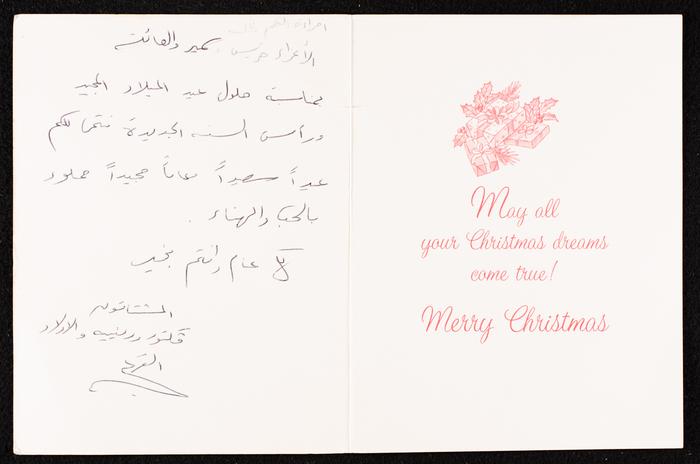 الأعزاء سمير والعائلة
بمناسبة حلول عيد الميلاد المجيد
ورأس السنة الجديدة نتمنى لكم
عيداً سعيداً وعاماً مجيداً مملوء
بالحب والهناء.
كل عام وانتم بخير
المشتاقون
فكتور والاولاد
May all
your Christmas dreams
come true!
Merry Christmas